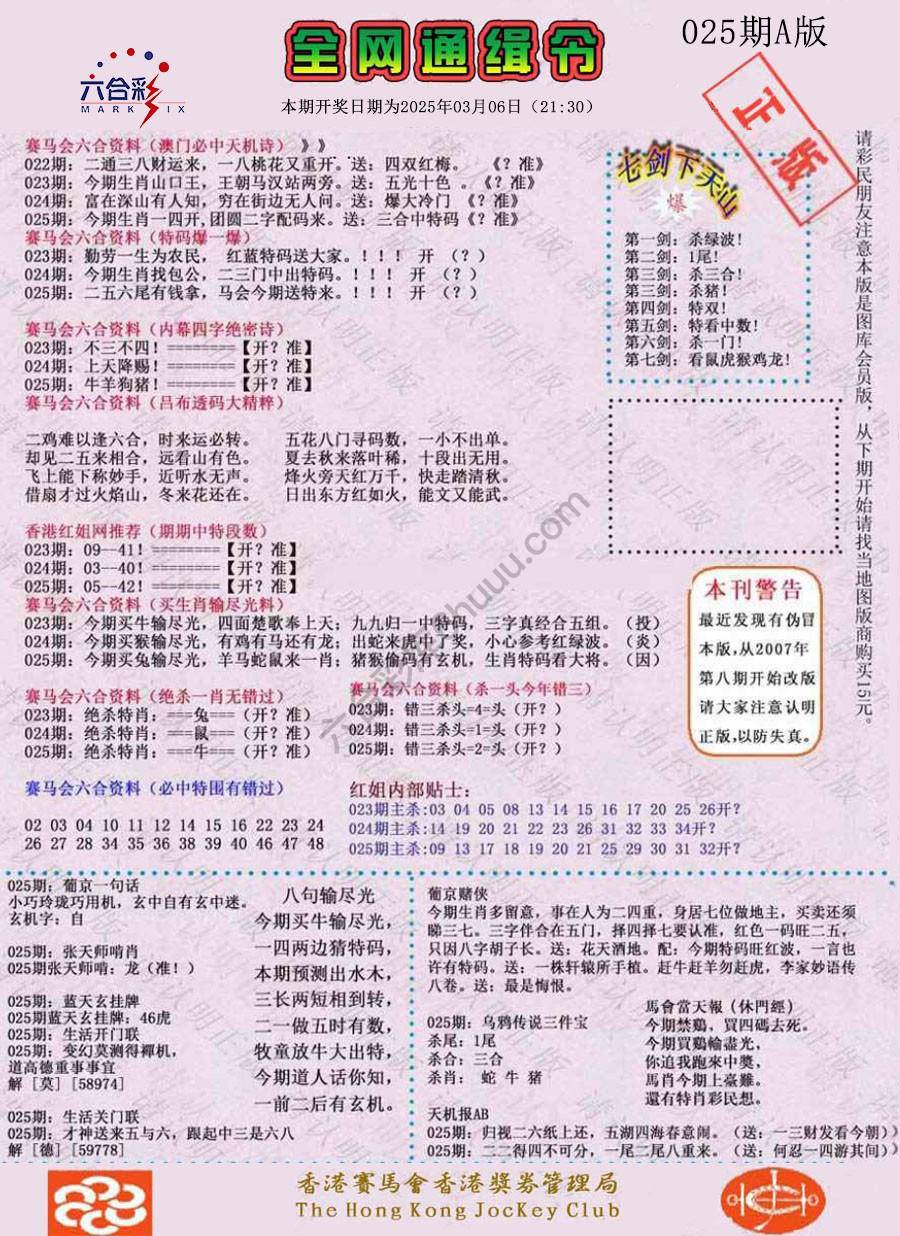 025期A版
全网通缉令
六合彩
MARK SIX
本期开奖日期为2025年03月06日（21:30）
正版
赛马会六合资料（澳门必中天机诗）》》
022期：二通三八财运来，一八桃花又重开.送：四双红梅。 《？准》
023期：今期生肖山口王，王朝马汉站两旁。送：五光十色 。《？准》
024期：富在深山有人知，穷在街边无人问。送：爆大冷门 《？准》
025期：今期生肖一四开,团圆二字配码来。送：三合中特码《？准》
赛马会六合资料（特码爆一爆）
023期：勤劳一生为农民， 红蓝特码送大家。！！！ 开 （？）
024期：今期生肖找包公，二三门中出特码。！！！ 开 （？）
025期：二五六尾有钱拿，马会今期送特来。！！！ 开 （？）
赛马会六合资料（内幕四字绝密诗）
023期：不三不四！========【开？准】
024期：上天降赐！========【开？准】
025期：牛羊狗猪！========【开？准】
赛马会六合资料（吕布透码大精粹）
二鸡难以逢六合，时来运必转。 五花八门寻码数，一小不出单。
却见二五来相合，远看山有色。 夏去秋来落叶稀，十段出无用。
飞上能下称妙手，近听水无声。 烽火旁天红万千，快走踏清秋。
借扇才过火焰山，冬来花还在。 日出东方红如火，能文又能武。
香港红姐网推荐（期期中特段数）
023期：09--41！========【开？准】
024期：03--40！========【开？准】
025期：05--42！========【开？准】
赛马会六合资料（买生肖输尽光料）
023期：今期买牛输尽光，四面楚歌奉上天；九九归一中特码，三字真经合五组。（投）
024期：今期买猴输尽光，有鸡有马还有龙；出蛇来虎中了奖，小心参考红绿波。（炎）
025期：今期买兔输尽光，羊马蛇鼠来一肖；猪猴偷码有玄机，生肖特码看大将。（因）
赛马会六合资料（绝杀一肖无错过）
023期：绝杀特肖：===兔===（开？准）
024期：绝杀特肖：===鼠===（开？准）
025期：绝杀特肖：===牛===（开？准）
赛马会六合资料（杀一头今年错三）
023期：错三杀头=4=头（开？）
024期：错三杀头=1=头（开？）
025期：错三杀头=2=头（开？）
赛马会六合资料（必中特围有错过）
02 03 04 10 11 12 14 15 16 22 23 24
26 27 28 34 35 36 38 39 40 46 47 48
红姐内部贴士：
023期主杀:03 04 05 08 13 14 15 16 17 20 25 26开？
024期主杀:14 19 20 21 22 23 26 31 32 33 34开？
025期主杀:09 13 17 18 19 20 21 25 29 30 31 32开？
七剑下天山
爆
第一剑：杀绿波！
第二剑：1尾！
第三剑：杀三合！
第三剑：杀猪！
第四剑：特双！
第五剑：特看中数！
第六剑：杀一门！
第七剑：看鼠虎猴鸡龙！
本刊警告
最近发现有伪冒
本版,从2007年
第八期开始改版
请大家注意认明
正版,以防失真。
请彩民朋友注意本版是图库会员版，从下期开始请找当地图版商购买15元。
025期：葡京一句话
小巧玲珑巧用机，玄中自有玄中迷。
玄机字：自
025期：张天师啃肖
025期张天师啃：龙（准！）
025期：蓝天玄挂牌
025期蓝天玄挂牌：46虎
025期：生活开门联
025期：变幻莫测得禪机，
道高德重事事宜
解［莫］[58974]
025期：生活关门联
025期：才神送来五与六，跟起中三是六八
解［德］[59778]
八句输尽光
今期买牛输尽光，
一四两边猜特码，
本期预测出水木，
三长两短相到转，
二一做五时有数，
牧童放牛大出特，
今期道人话你知，
一前二后有玄机。
葡京赌侠
今期生肖多留意，事在人为二四重，身居七位做地主，买卖还须
睇三七。三字伴合在五门，择四择七要认准，红色一码旺二五，
只因八字胡子长。送：花天酒地。配：今期特码旺红波，一言也
许有特码。送：一株轩辕所手植。赶牛赶羊勿赶虎，李家妙语传
八卷。送：最是悔恨。
025期：乌鸦传说三件宝
杀尾：1尾
杀合：三合
杀肖： 蛇 牛 猪
馬會當天報（休門經）
今期禁鷄，買四碼去死。
今期買鷄輸盡光，
你追我跑來中獎，
馬肖今期上臺難。
還有特肖彩民想。
天机报AB
025期：归视二六纸上还，五湖四海春意闹。（送：一三财发看今朝)）
025期：二二得四不可分，一尾二尾八重来。（送：何忍一四游其间)）
香港賽馬會香港獎券管理局
The Hong Kong JocKey Club